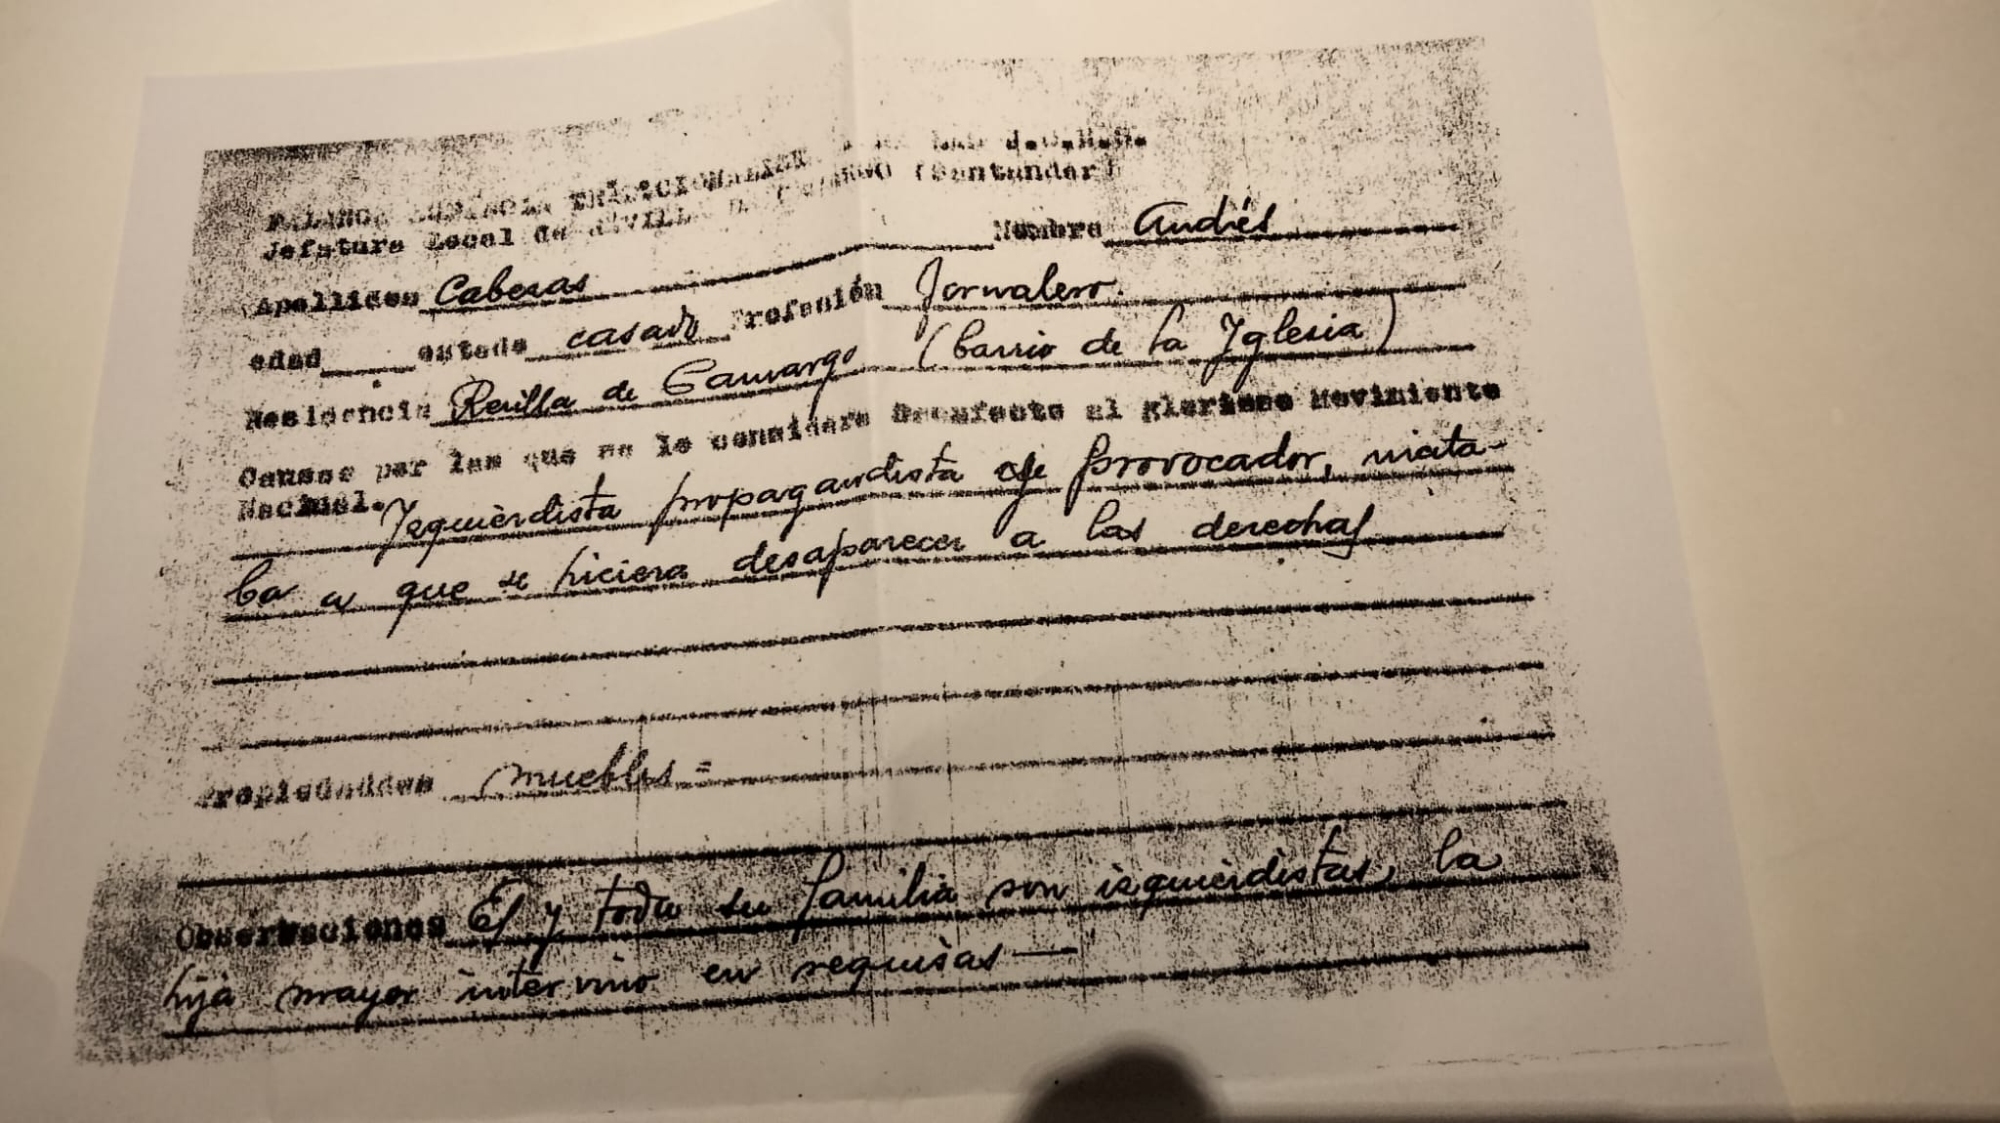 FALANGE ESPAÑOLA TRADICIONALISTA
Jefatura Local de REVILLA DE CAMARGO (Santander)
Apellidos Cabezas Nombre Andrés
edad estado casado Profesión Jornalero.
Residencia Revilla de Camargo (barrio de la Yglesia)
Causas por las que se le considera Desafecto al glorioso Movimiento
Nacional. Yzquierdista propagandista provocador, incita-
ba a que se hiciera desaparecer a las derechas
Propiedaddes muebles =
Observaciones El y toda su familia son izquierdistas, la
hija mayor intervino en requisas —